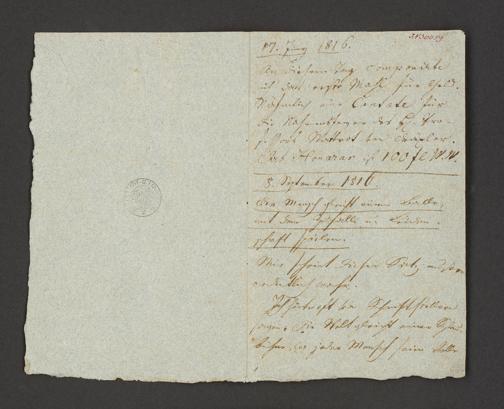 17. Juny 1816.
An diesem Tag componirte
ich das erste Mahl für Geld.
Nähmlich eine Cantate für
die Nahmensfeyer des H. Pro-
fessors Wattrot von Dräxler.
Das Honorar ist 100 fl W.W.
8. September 1816.
Der Mensch gleicht einem Balle,
mit dem Zufall u: Leiden-
schaft spielen.
Mir scheint dieser Satz
wahr.
Ich hörte oft von Schriftstellern
sagen: Die Welt gleicht einer Schau-
bühne, wo jeder Mensch seine Rolle